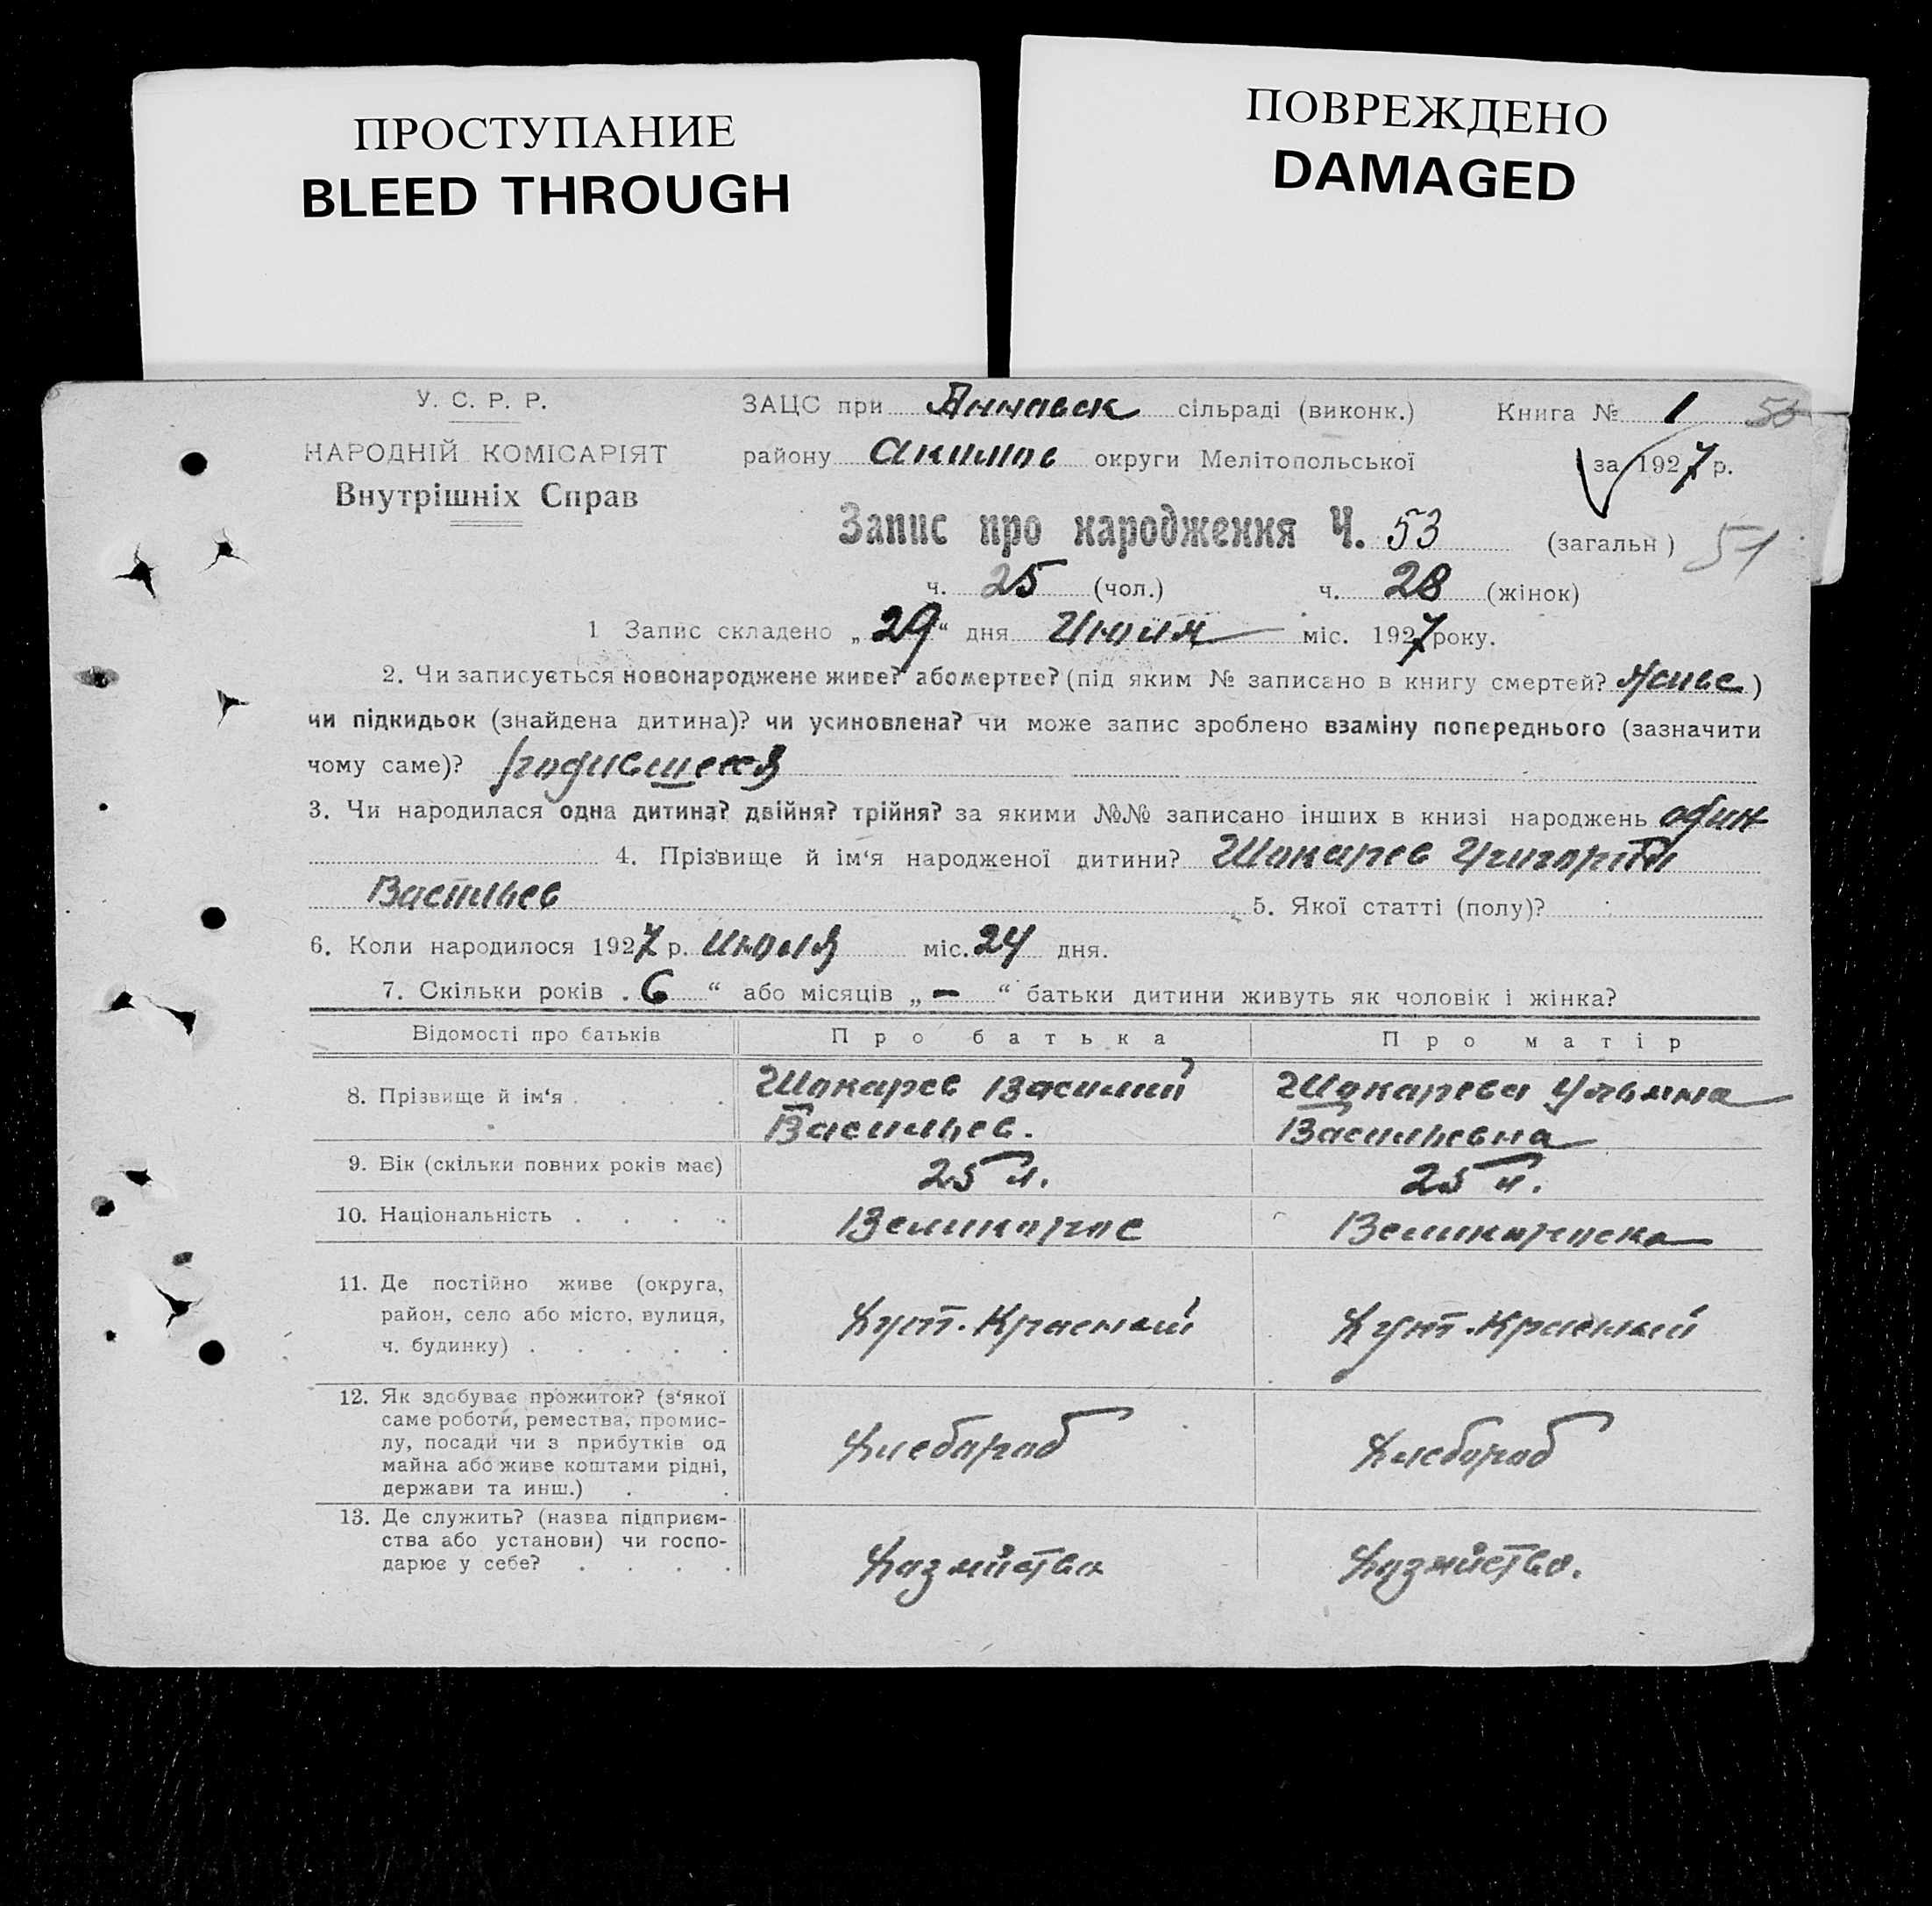 ПРОСТУПАНИЕ
BLEED THROUGH
ПОВРЕЖДЕНО
DAMAGED
У. С. Р. Р.
НАРОДНІЙ КОМІСАРІЯТ
Внутрішніх Справ
ЗАЦС при Аннавск сільраді (виконк.) Книга № 1 53
району Акимов округи Мелітопольської за 1927 р.
Запис про народження Ч. 53 (загальн) 51
ч. 25 (чол.) ч. 28 (жінок)
1 Запис складено „29“ дня Июля міс. 1927 року.
2. Чи записується новонароджене живе? або мертве? (під яким № записано в книгу смертей? живе)
чи підкидьок (знайдена дитина)? чи усиновлена? чи може запис зроблено взаміну попереднього (зазначити
чому саме)? родившееся
3. Чи народилася одна дитина? двійня? трійня? за якими №№ записано інших в книзі народжень один
4. Прізвище й ім‘я народженої дитини? Шокарев Григорий
Васильев 5. Якої статті (полу)?
6. Коли народилося 1927 р. июля міс. 24 дня.
7. Скільки років „6“ або місяців „–“ батьки дитини живуть як чоловік і жінка?
Відомості про батьків Про батька Про матір
8. Прізвище й ім‘я . . . . Шокарев Василий Шокарева Ульяна
Васильев. Васильевна
9. Вік (скільки повних років має) 25 л. 25 л.
10. Національність . . . . Великорос Великороска
11. Де постійно живе (округа,
район, село або місто, вулиця,
ч. будинку) . . . . . Хут. Красный Хут. Красный
12. Як здобуває прожиток? (з‘якої
саме роботи, ремества, промис-
лу, посади чи з прибутків од
майна або живе коштами рідні,
держави та инш.) . . Хлебороб Хлебороб
13. Де служить? (назва підприєм-
ства або установи) чи госпо-
дарює у себе? . . . . Хозяйство Хозяйство.